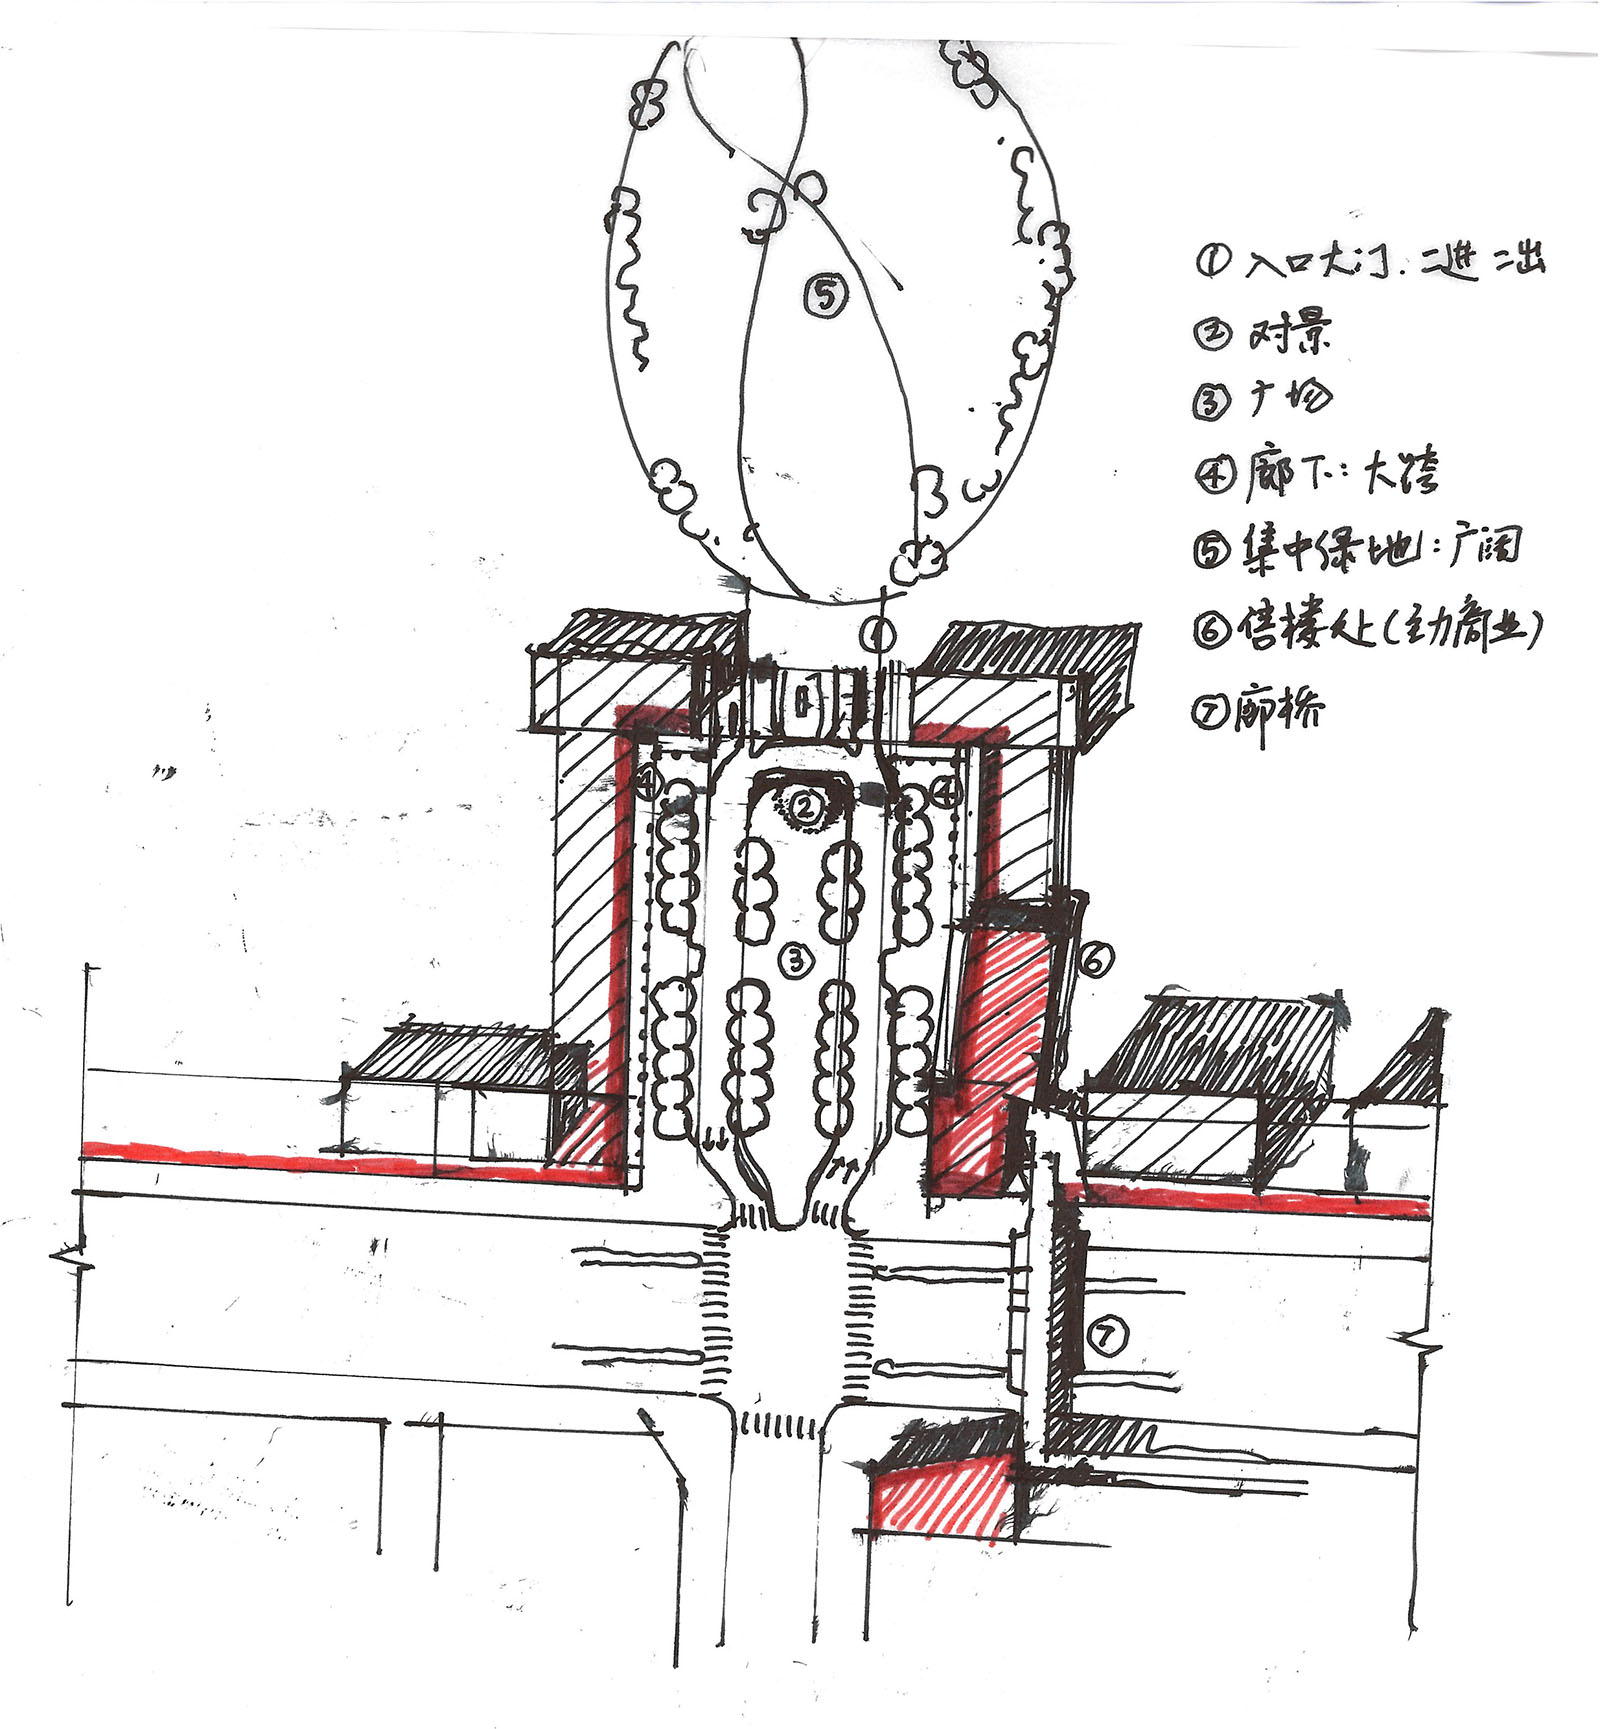 ⑤
① 入口大门.二进二出
② 对景
③ 广场
④ 廊下:大跨
⑤ 集中绿地:广阔
①
⑥ 售楼处(主力商业)
⑦ 廊桥
④
②
④
③
⑥
⑦